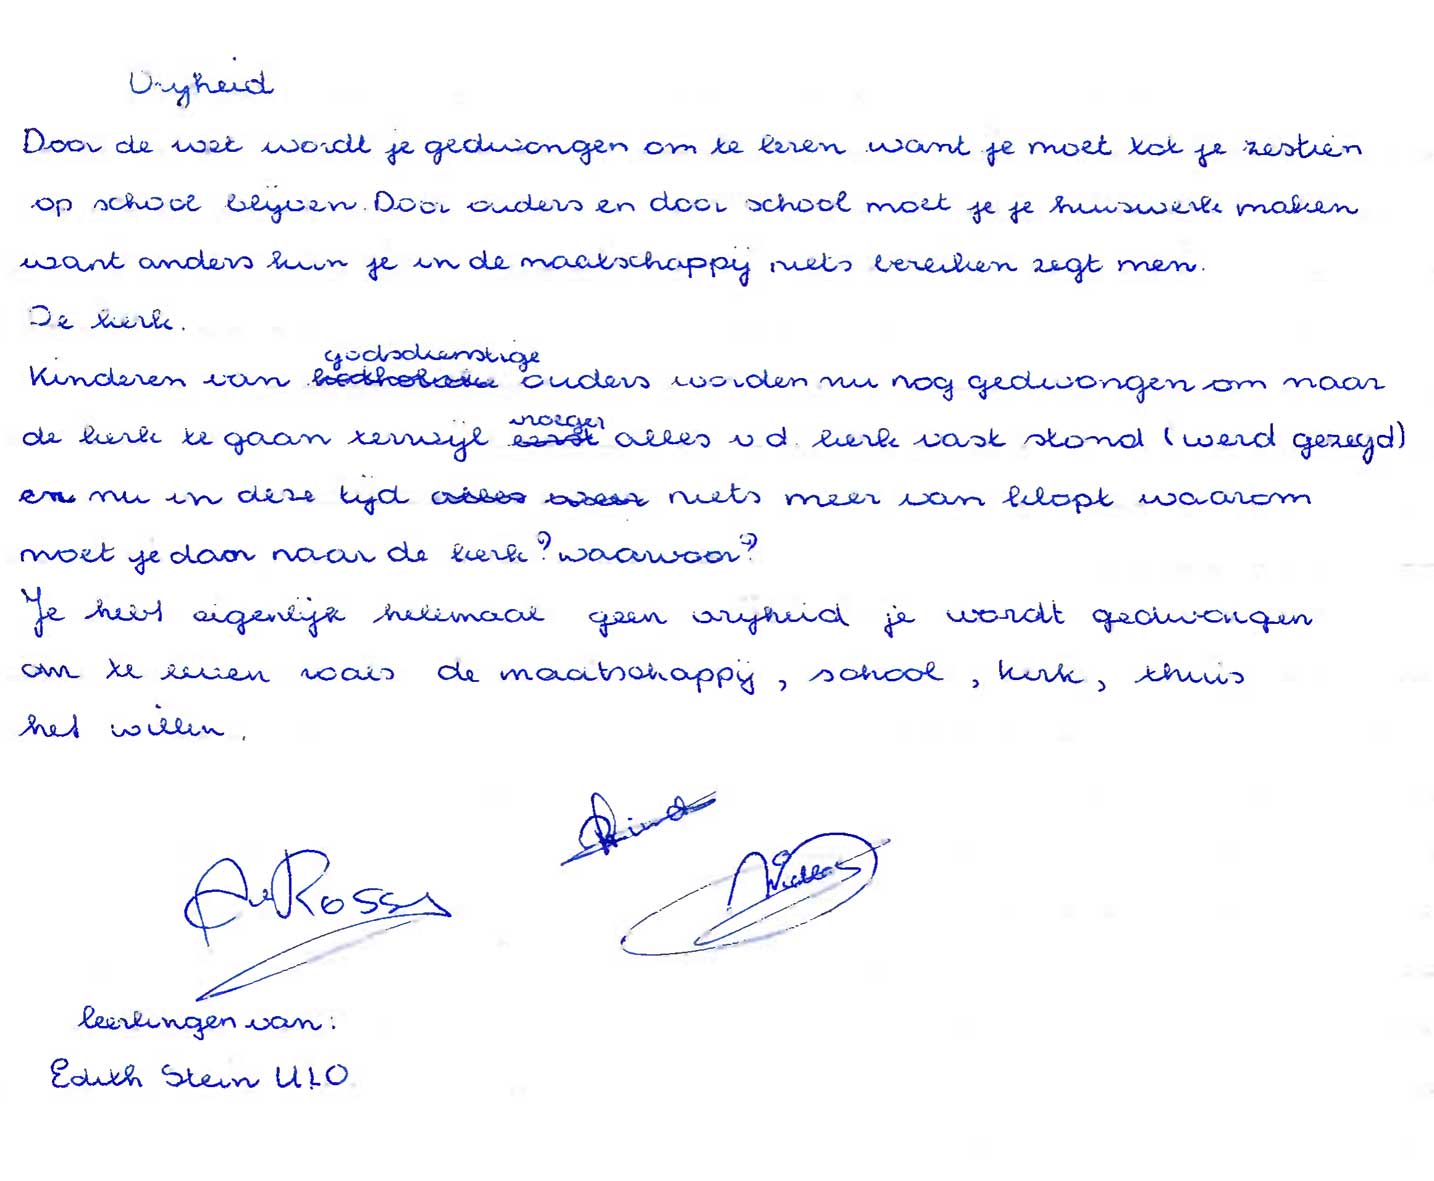 Vrijheid
Door de wet wordt je gedwongen om te leren want je moet tot je zestien
op school blijven. Door ouders en door school moet je je huiswerk maken
want anders kun je in de maatschappij niets bereiken zegt men.
De kerk.
Kinderen van godsdienstige ouders worden nu nog gedwongen om naar
de kerk te gaan terwijl vroeger alles v d. kerk vast stond (werd gezegd)
en nu in deze tijd niets meer van klopt waarom
moet je dan naar de kerk? waarvoor?
Je hebt eigenlijk helemaal geen vrijheid je wordt gedwongen
om te leven zoals de maatschappij, school, kerk, thuis
het willen.
leerlingen van:
Edith Stein ULO